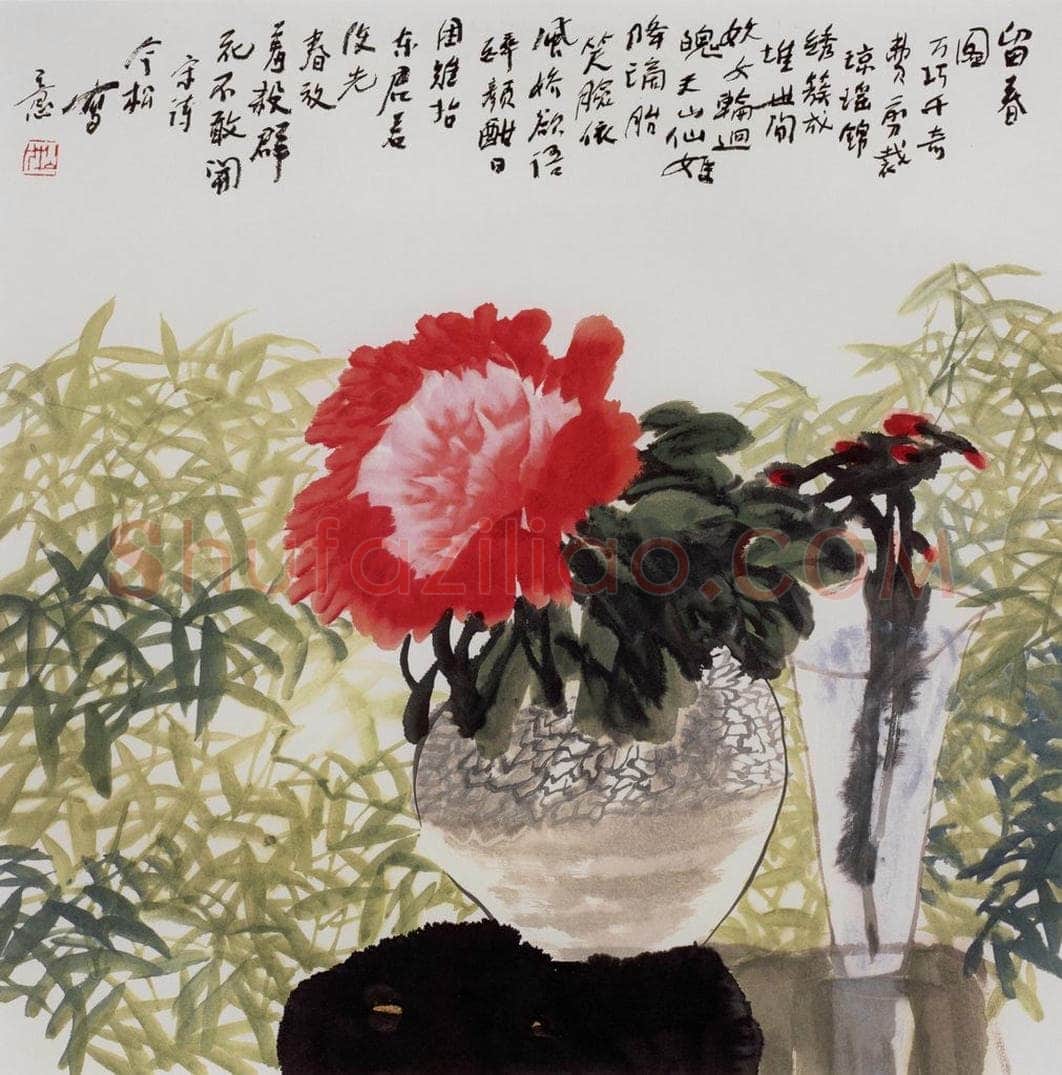 留春
图
万巧千奇
费剪裁
琼瑶锦
绣簇成
堆世间
妖女轮迴
魄天山仙姬
降谪胎
笑脸依
风娇欲语
醉颜酣日
困难抬
东君若
没先
春放
羞杀群
花不敢开
宋诗
今松
写
Shufaziliao.com